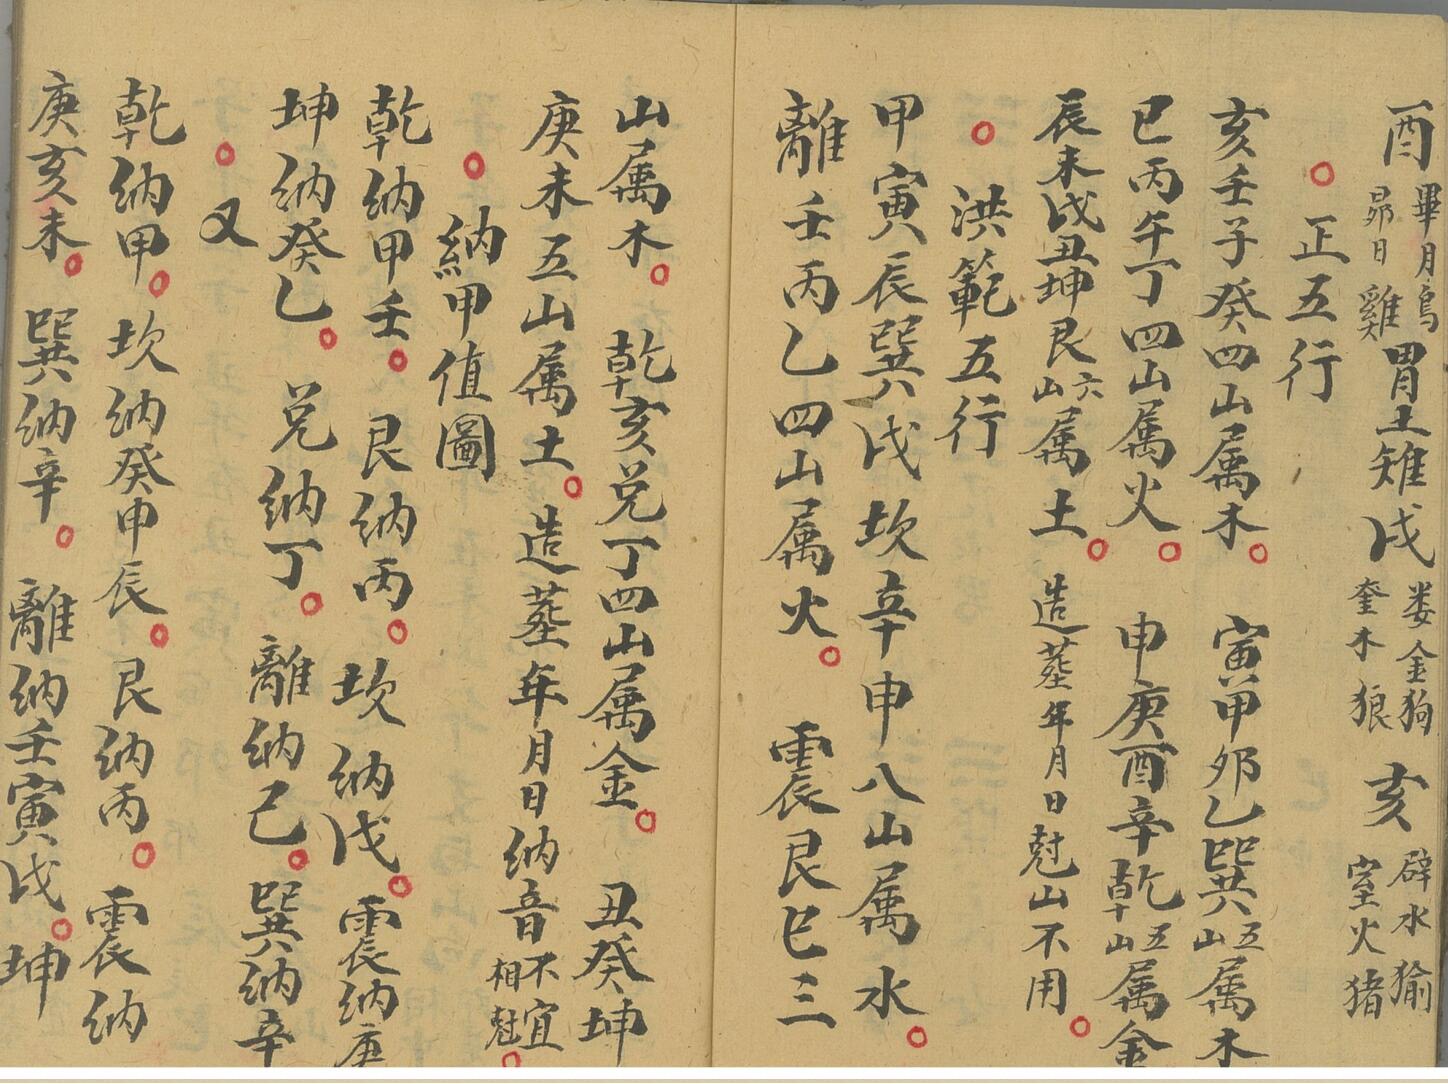 酉畢月烏昴日雞胃土雉戌婁金狗奎木狼亥壁水㺄室火猪
正五行
亥壬子癸四山属木寅甲卯乙巽五山属木
巳丙午丁四山属火申庚酉辛乾五山属金
辰未戌丑坤艮六山属土造塟年月日尅山不用
洪範五行
甲寅辰巽戌坎辛申八山属水
離壬丙乙四山属火震艮巳三
山属木乾亥兌丁四山属金丑癸坤
庚未五山属土造塟年月日納音不宜相尅
納甲值圖
乾納甲壬艮納丙坎納戊震納庚
坤納癸乙兌納丁離納己巽納辛
又
乾納甲坎納癸申辰艮納丙震納
庚亥未巽納辛離納壬寅戌坤